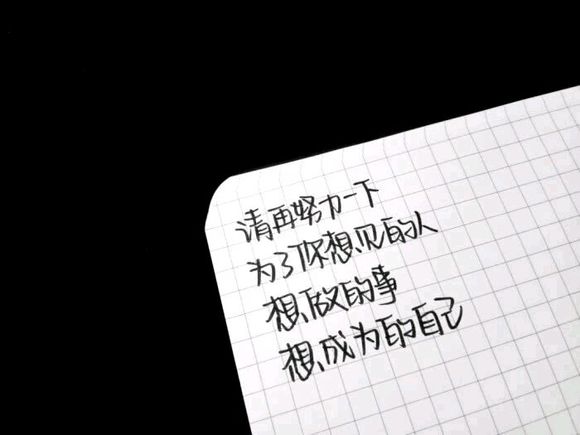 请再努力一下
为了你想见的人
想做的事
想成为的自己